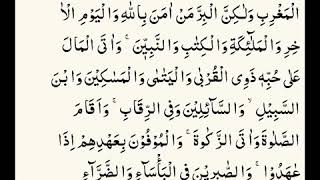 الْمَغْرِبِ وَلٰكِنَّ الْبِرَّ مَنْ اٰمَنَ بِاللّٰهِ وَالْيَوْمِ الْاٰ
خِرِ وَالْمَلٰٓئِكَةِ وَالْكِتٰبِ وَالنَّبِيّٖنَ ۚ وَاٰتَى الْمَالَ
عَلٰى حُبِّهٖ ذَوِى الْقُرْبٰى وَالْيَتٰمٰى وَالْمَسٰكِيْنَ وَابْنَ
السَّبِيْلِ ۙ وَالسَّآئِلِيْنَ وَفِى الرِّقَابِ ۚ وَاَقَامَ
الصَّلٰوةَ وَاٰتَى الزَّكٰوةَ ۚ وَالْمُوْفُوْنَ بِعَهْدِهِمْ اِذَا
عٰهَدُوْا ۚ وَالصّٰبِرِيْنَ فِى الْبَاْسَآءِ وَالضَّرَّآءِ